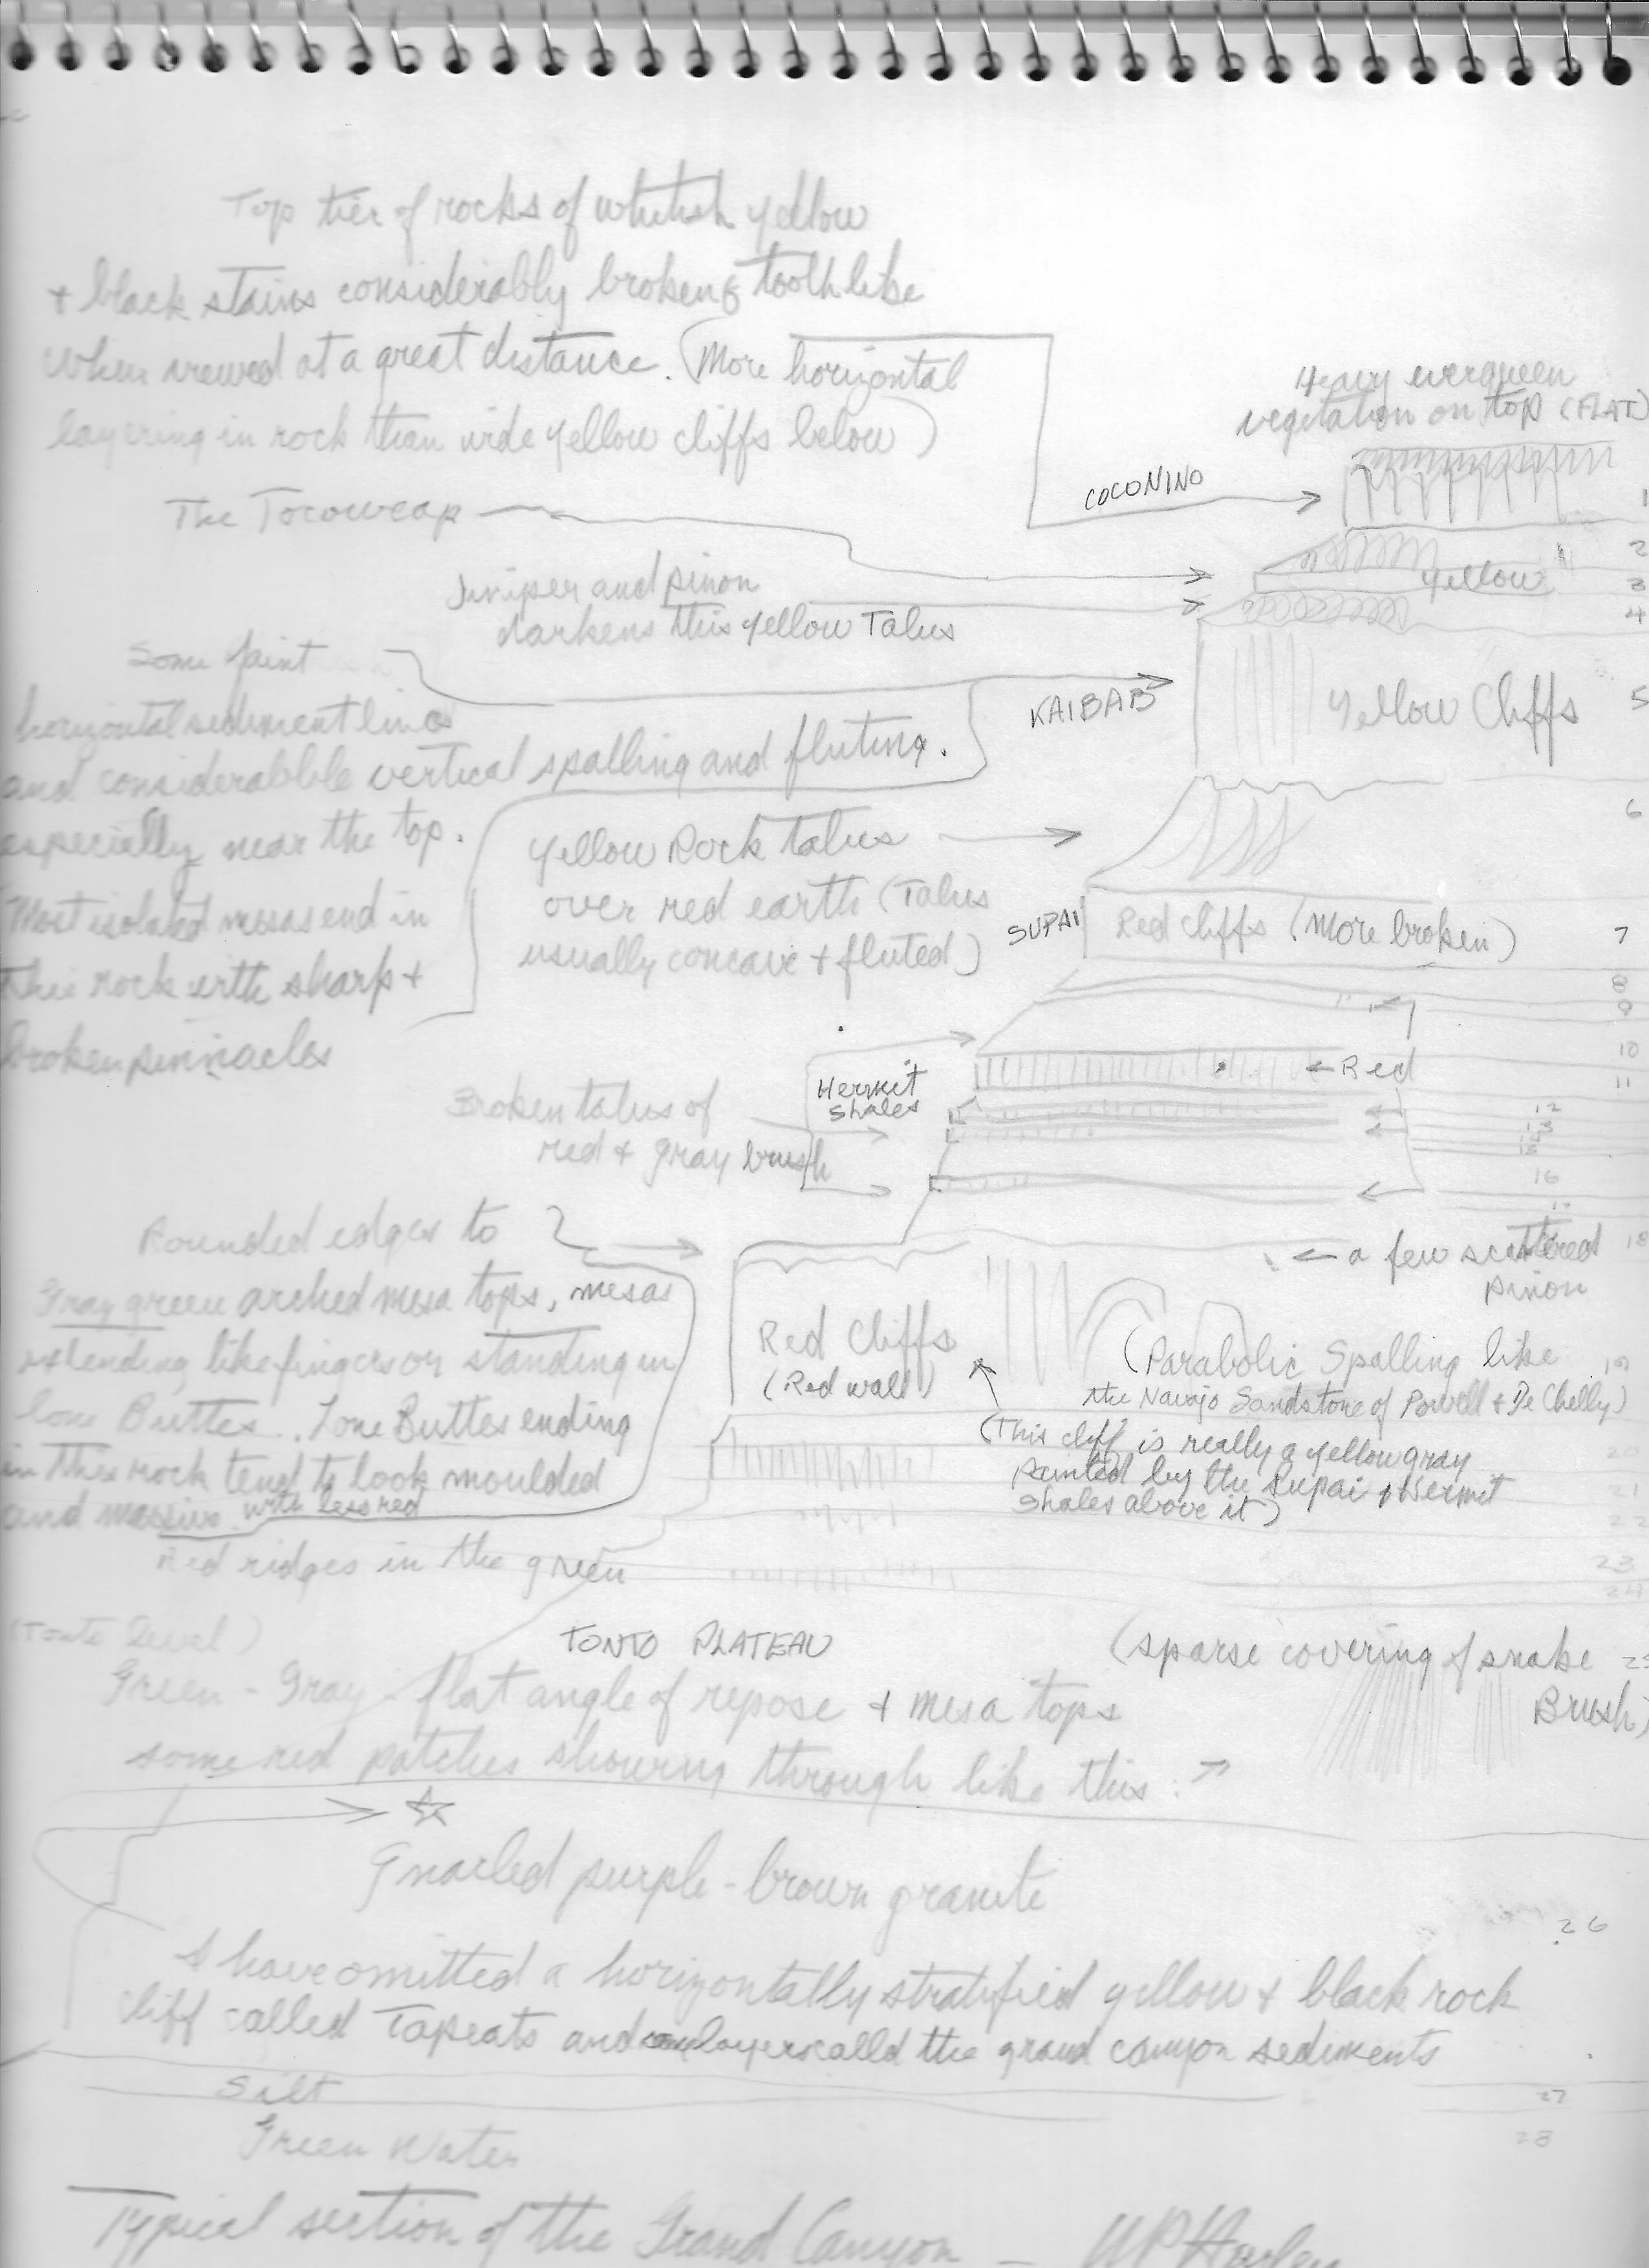 Top tier of rocks of whitish yellow
+ black stains considerably broken & toothlike
when viewed at a great distance. (More horizontal
layering in rock than wide yellow cliffs below)
Heavy evergreen
vegetation on top (FLAT)
COCONINO
1
The Tocoweap
2
Yellow
3
Juniper and pinon
darkens this yellow Talus
4
Some faint
horizontal sediment lines
and considerabble vertical spalling and fluting.
especially near the top.
Most isolated mesas end in
this rock with sharp +
broken pinnacles
KAIBAB
Yellow Cliffs
5
6
Yellow Rock talus
over red earth (Talus
usually concave + fluted)
SUPAI
Red cliffs (More broken)
7
8
9
10
Red
11
Hermit
Shales
Broken talus of
red + gray brush
12
13
14
15
16
17
Rounded edges to
Gray green arched mesa tops, mesas
extending like fingers or standing in
lone Buttes. Lone Buttes ending
in this rock tend to look moulded
and massive with less red
a few scattered
pinon
18
Red Cliffs
(Red wall)
(Parabolic Spalling like
the Navajo Sandstone of Powell + De Chelly)
19
(This cliff is really a yellow gray
painted by the Supai + Hermit
shales above it)
20
21
22
Red ridges in the green
23
24
(Tonto level)
TONTO PLATEAU
(sparse covering of snake
Brush)
25
Green - Gray - flat angle of repose + mesa tops
some red patches showing through like this :
Gnarled purple - brown granite
26
I have omitted a horizontally stratified yellow + black rock
cliff called Tapeats and layers calld the grand canyon sediments
Silt
27
Green Water
28
Typical section of the Grand Canyon — WP Harlen